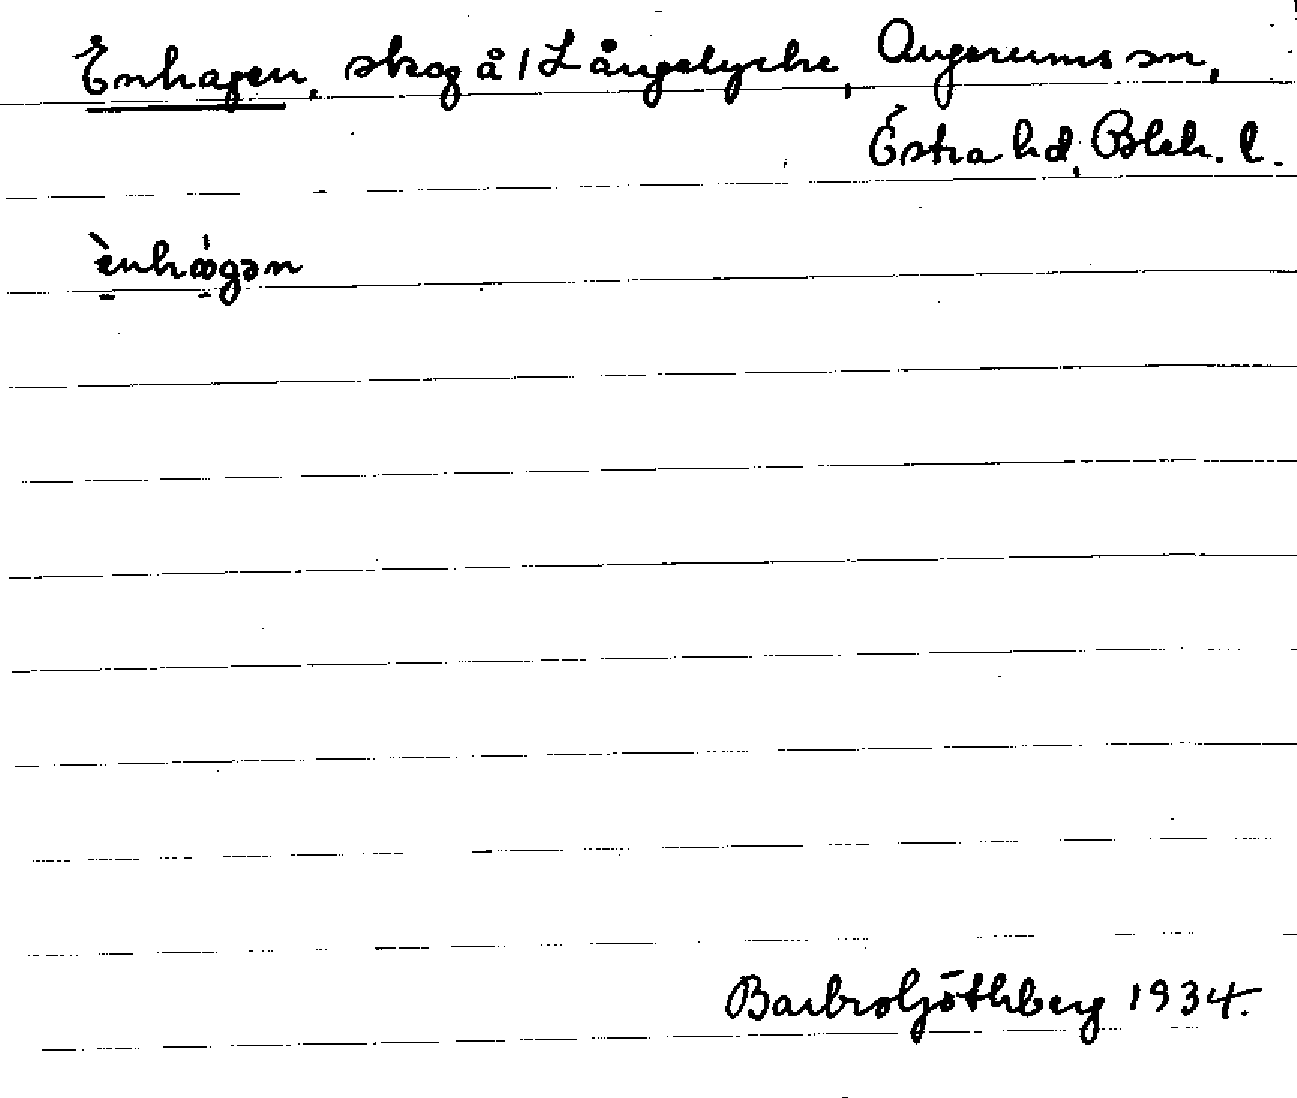 Enhagen, skog å 1 Långelycke, Augerums sn,
Östra hd, Blek. l.
ènhágən
Barbro Göthberg 1934.